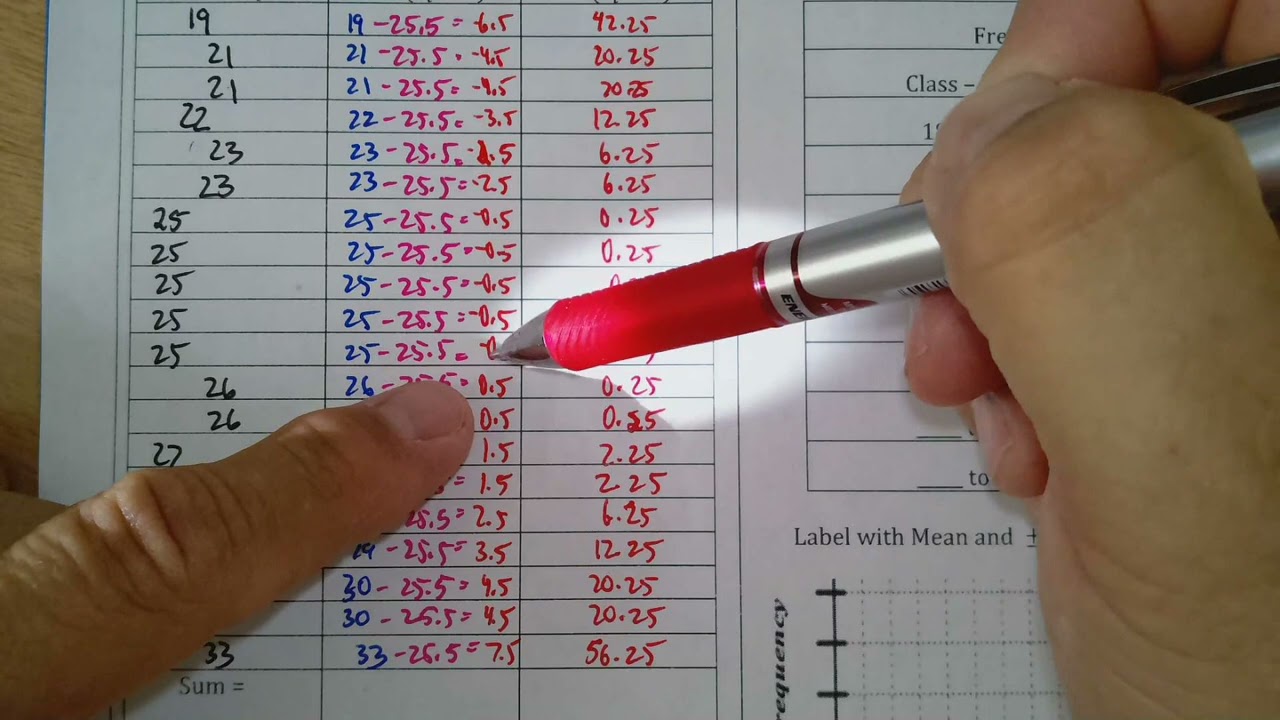 19 19 -25.5 = -6.5 42.25
21 21 -25.5 = -4.5 20.25
21 21 -25.5 = -4.5 20.25
22 22 -25.5 = -3.5 12.25
23 23 -25.5 = 6.25
23 23 -25.5 = -2.5 6.25
25 25 -25.5 = -0.5 0.25
25 25 -25.5 = -0.5 0.25
25 25 -25.5 = -0.5
25 25 -25.5 = -0.5
25 25 -25.5 =
26 26 - = 0.5 0.25
26 0.5 0.25
27 1.5 2.25
= 1.5 2.25
25.5 = 2.5 6.25
-25.5 = 3.5 12.25
30 - 25.5 = 4.5 20.25
30 - 25.5 = 4.5 20.25
33 33 -25.5 = 7.5 56.25
Sum =
Class –
to
Label with Mean and ±
ENE